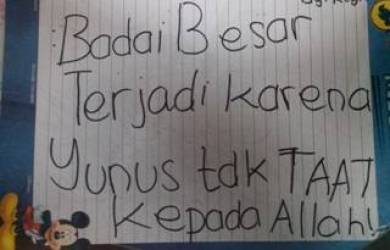 : Badai Besar
Terjadi karena
Yunus tdk TAAT
Kepada Allah!